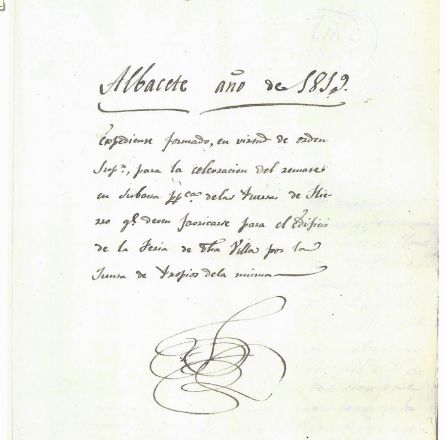 Albacete año de 1819.
Expediente formado, en virtud de orden
Sup.r, para la celebracion del remate
en subasta pp.ca delas Puertas de Hie-
rro q.e deven fabricarse para el Edificio
de la Feria de dha Villa por la
Junta de Propios dela misma